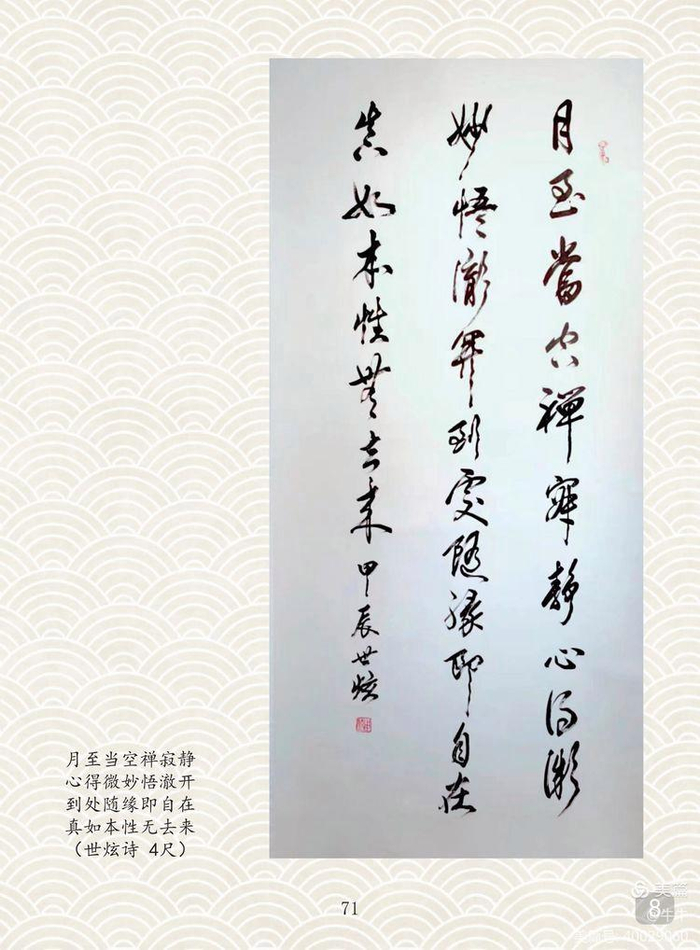 月至當空禅寂靜心得微
妙悟澈開到處隨緣即自在
真如本性無去来 甲辰 世炫
月至当空禅寂静
心得微妙悟澈开
到处随缘即自在
真如本性无去来
（世炫诗 4尺）
71
美篇
8
@牛牛